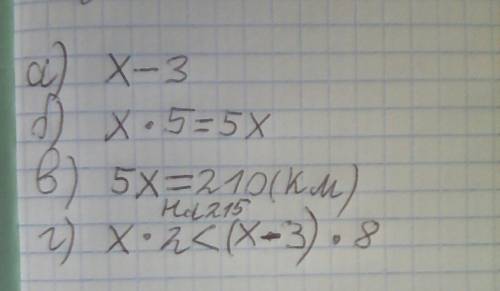 а) x-3
б) x·5=5x
в) 5x=210(км)
на 215
г) x·2<(x-3)·8